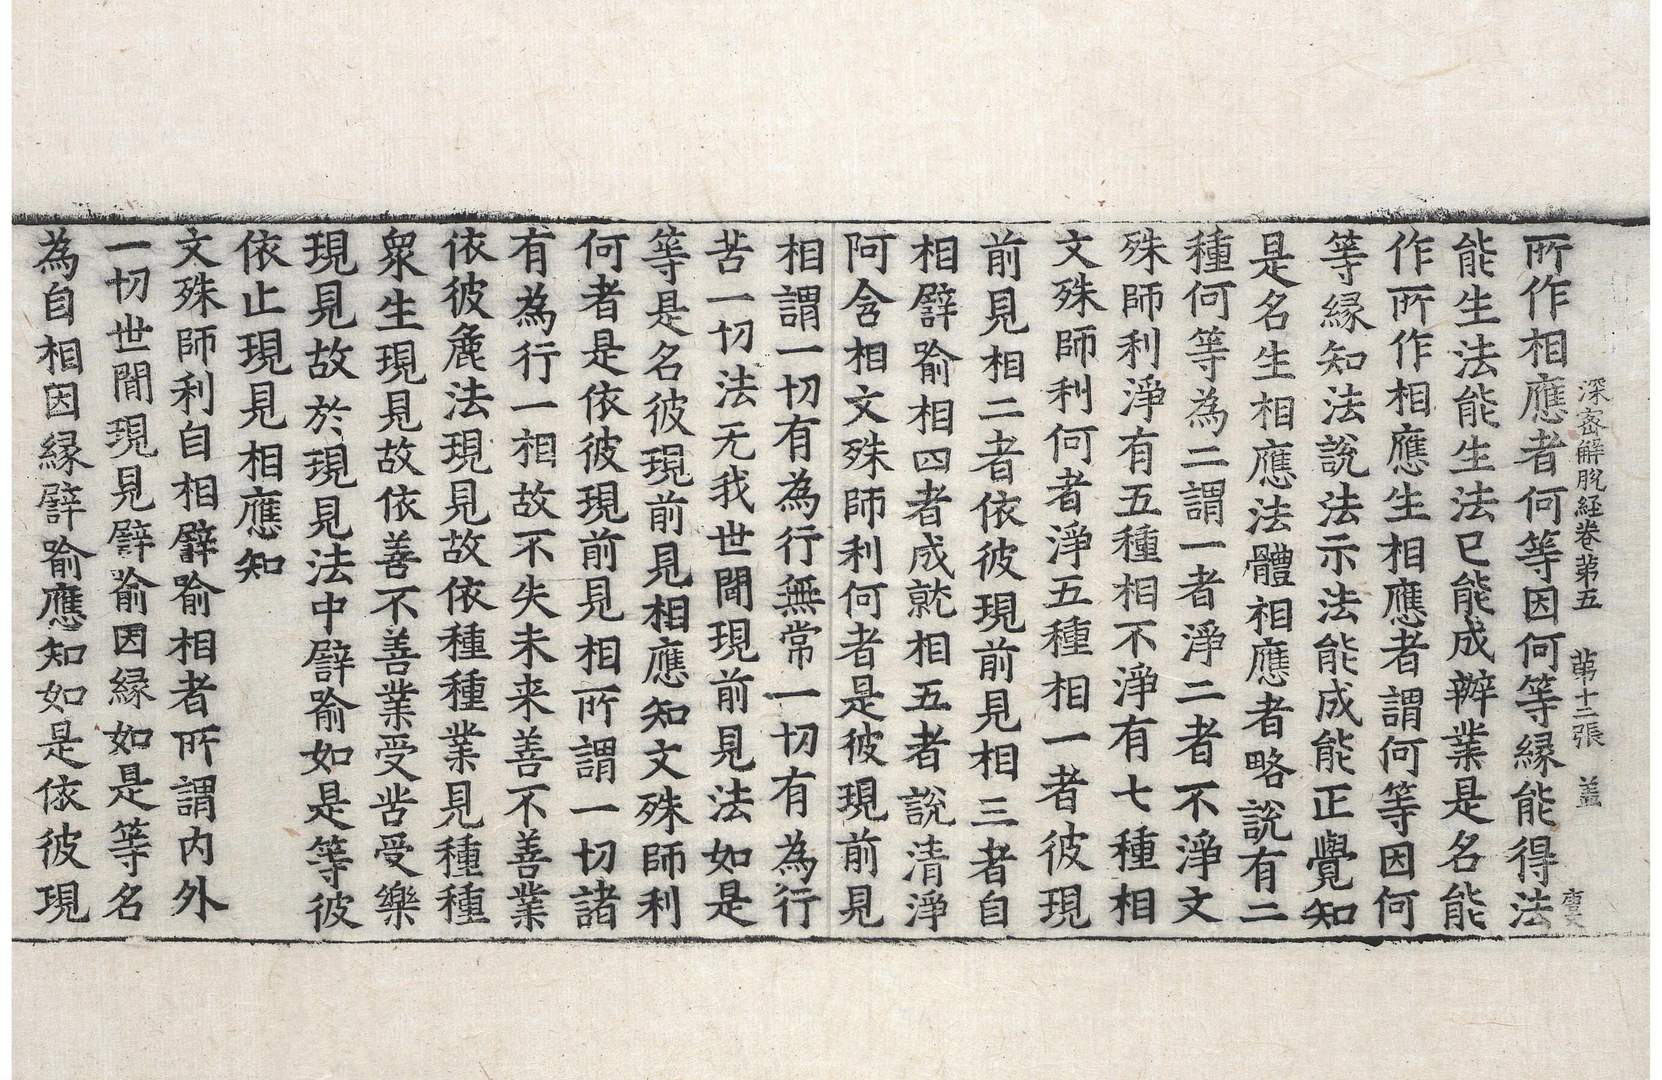 深宻解脫経卷苐五　苐十二張　盖
所作相應者何等因何等縁能得法
能生法能生法巳能成辦業是名能
作所作相應生相應者謂何等因何
等縁知法說法示法能成能正覺知
是名生相應法體相應者略說有二
種何等為二謂一者淨二者不淨文
殊師利淨有五種相不淨有七種相
文殊師利何者淨五種相一者彼現
前見相二者依彼現前見相三者自
相譬喻相四者成就相五者說清淨
阿含相文殊師利何者是彼現前見
相謂一切有為行無常一切有為行
苦一切法无我世間現前見法如是
等是名彼現前見相應知文殊師利
何者是依彼現前見相所謂一切諸
有為行一相故不失未来善不善業
依彼麁法現見故依種種業見種種
衆生現見故依善不善業受苦受樂
現見故於現見法中譬喻如是等彼
依止現見相應知
文殊師利自相譬喻相者所謂内外
一切世間現見譬喻因縁如是等名
為自相因縁譬喻應知如是依彼現